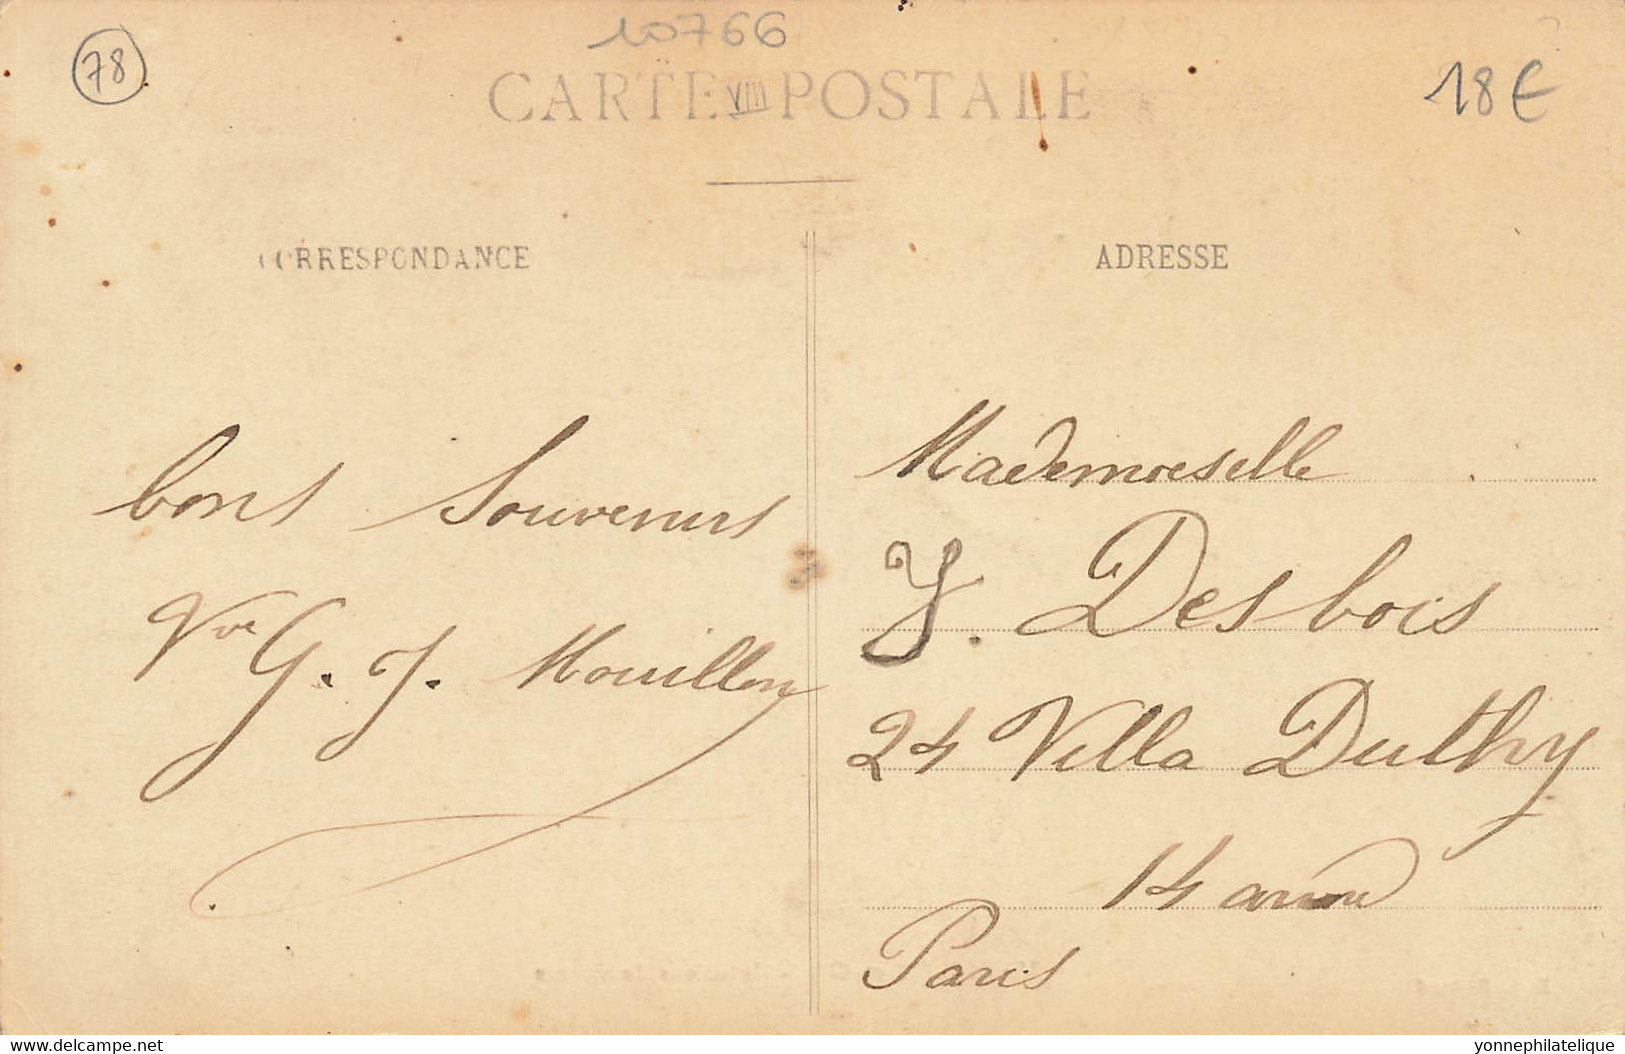 10766
78
CARTE VIII POSTALE
18€
CORRESPONDANCE
ADRESSE
bons Souvenirs
Vve G. J. Mouillon
Mademoiselle
Y. Desbois
24 Villa Duthy
14 arron
Paris
www.delcampe.net
yonnephilatelique